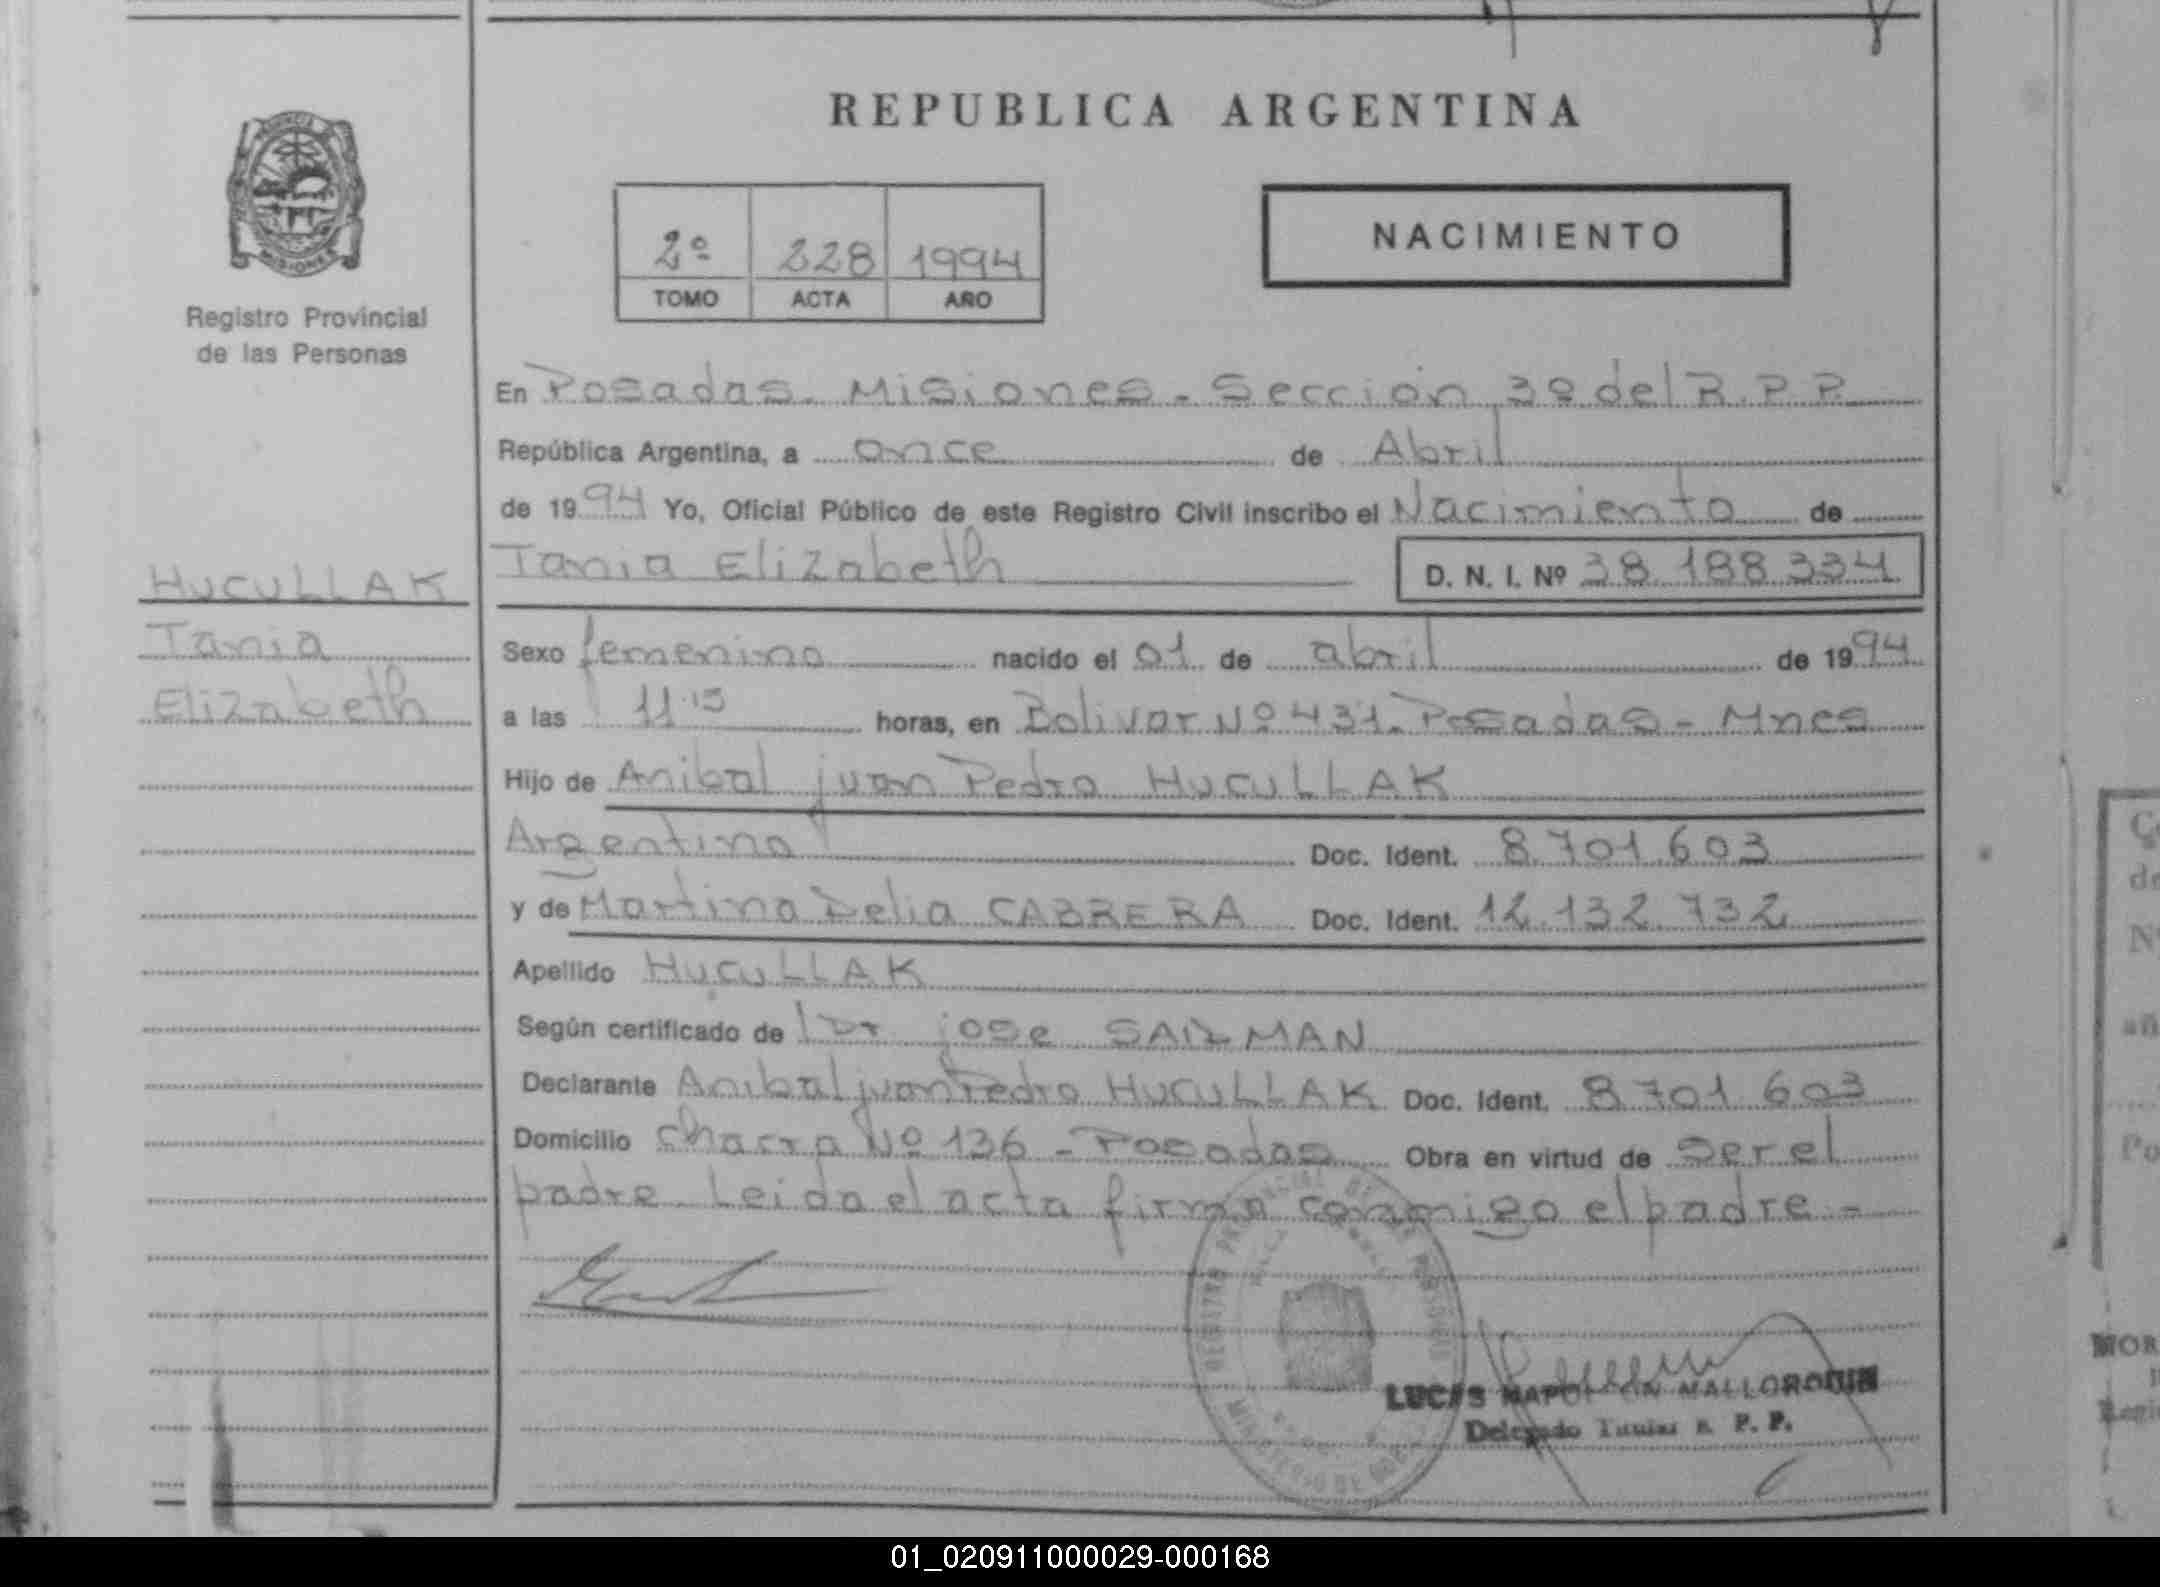 REPUBLICA ARGENTINA
MISIONES
Registro Provincial
de las Personas
2º 228 1994
TOMO ACTA AÑO
NACIMIENTO
En Posadas. Misiones - Sección 3º del R.P.P.
República Argentina, a once de Abril
de 1994 Yo, Oficial Público de este Registro Civil inscribo el Nacimiento de
Tania Elizabeth D. N. I. Nº 38 188 334
HUCULLAK
Tania
Elizabeth
Sexo femenino nacido el 01 de abril de 1994
a las 11.15 horas, en Bolivar Nº 431. Posadas - Mnes
Hijo de Anibal juan Pedro HUCULLAK
Argentino Doc. Ident. 8.701.603
y de Martina Delia CABRERA Doc. Ident. 12.132.732
Apellido HUCULLAK
Según certificado de Dr. jose
Declarante Anibal juan Pedro HUCULLAK Doc. Ident. 8 701 603
Domicilio Chacra Nº 136 - Posadas Obra en virtud de ser el
padre. Leida el acta firma conmigo el padre -
REGISTRO PROVINCIAL DE LAS PERSONAS
LUCAS NAPOLEON MALLORQUIN
Delegado Titular R. P. P.
01_020911000029-000168